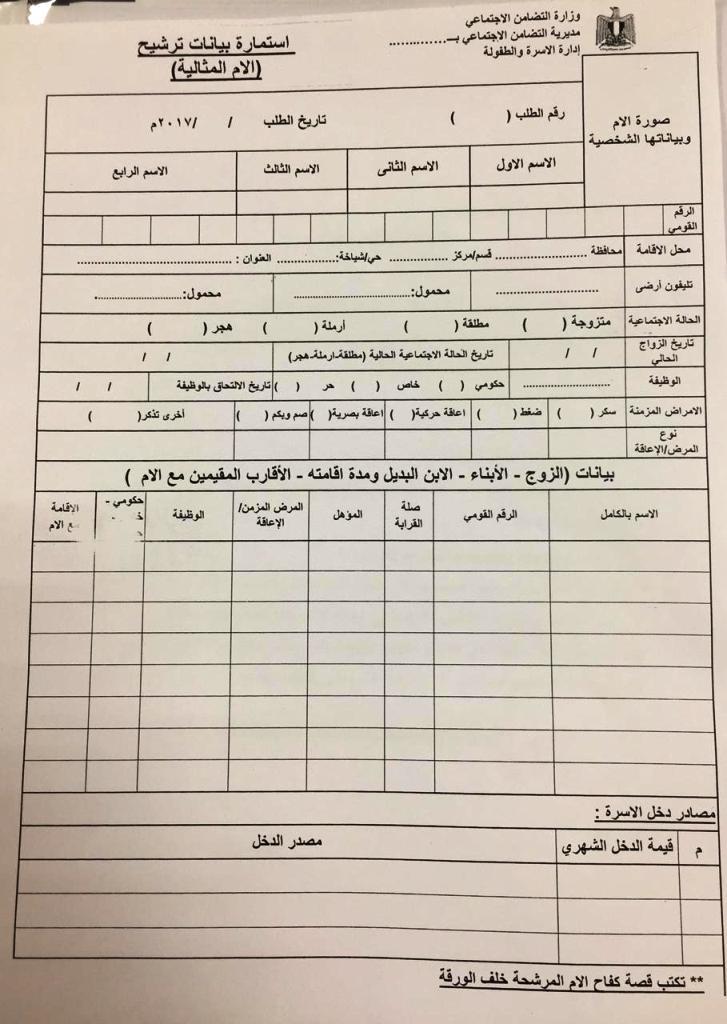 وزارة التضامن الاجتماعي
مديرية التضامن الاجتماعي بــ................
إدارة الاسرة والطفولة
استمارة بيانات ترشيح
(الام المثالية)
صورة الام
وبياناتها الشخصية
رقم الطلب ( ) تاريخ الطلب / /٢٠١٧م
الاسم الاول الاسم الثانى الاسم الثالث الاسم الرابع
الرقم
القومي
محل الاقامة محافظة ........................ قسم/مركز ............... حي/شياخة:............... العنوان : ........................................
تليفون أرضى ........................... محمول:............................... محمول:.......................
الحالة الاجتماعية متزوجة ( ) مطلقة ( ) أرملة ( ) هجر ( )
تاريخ الزواج
الحالي
/ / تاريخ الحالة الاجتماعية الحالية (مطلقة-ارملة-هجر) / /
الوظيفة ........................ حكومي ( ) خاص ( ) حر ( ) تاريخ الالتحاق بالوظيفة / /
الامراض المزمنة سكر ( ) ضغط ( ) اعاقة حركية( ) اعاقة بصرية( ) صم وبكم ( ) أخرى تذكر( )
نوع
المرض/الإعاقة
بيانات (الزوج - الأبناء - الابن البديل ومدة اقامته - الأقارب المقيمين مع الام )
الاسم بالكامل الرقم القومي صلة القرابة المؤهل المرض المزمن/ الإعاقة الوظيفة حكومي - الاقامة مع الام
مصادر دخل الاسرة :
م قيمة الدخل الشهري مصدر الدخل
** تكتب قصة كفاح الام المرشحة خلف الورقة